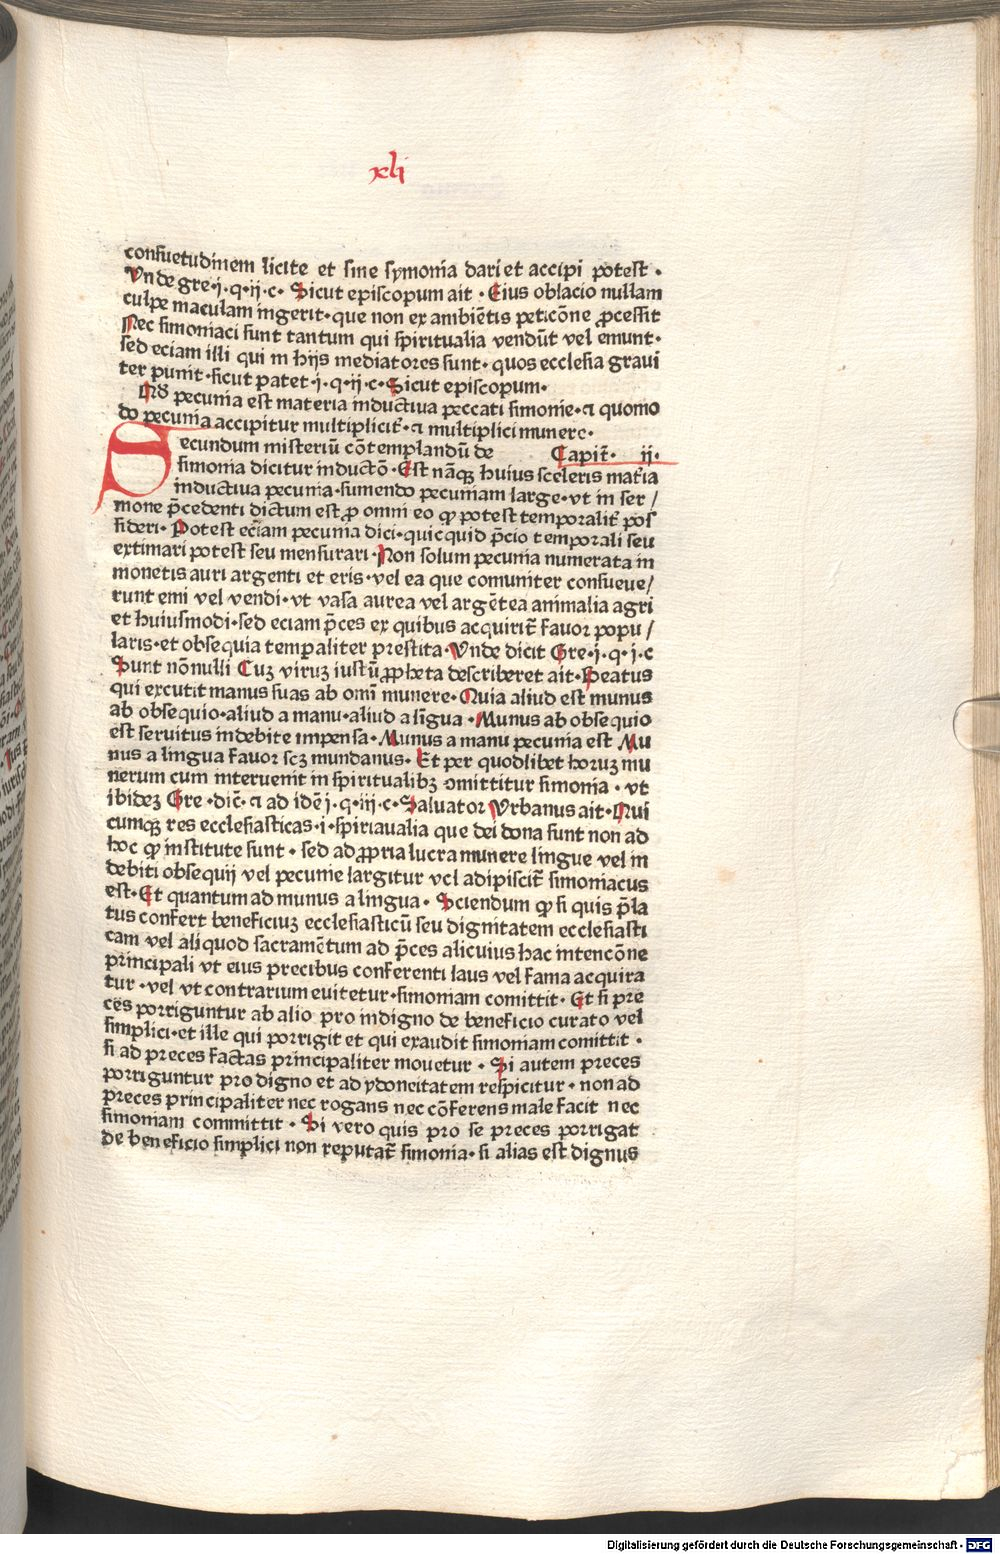 xli
consuetudinem licite et sine symonia dari et accipi potest .
Vnde gre·i·q·ij·c· Sicut episcopum ait · Eius oblacio nullam
culpe maculam ingerit·que non ex ambiẽtis peticõne ꝓcessit
Nec simoniaci sunt tantum qui spiritualia vendũt vel emunt·
sed eciam illi qui in hijs mediatores sunt· quos ecclesia graui
ter punit·sicut patet·i·q·ij·c·Sicut episcopum·
pecunia est materia inductiua peccati simonie·⁊ quomo
do pecunia accipitur multiplicit̃·⁊ multiplici munere·
Secundum misteriũ cõtemplandũ de Capit̃· ij·
simonia dicitur inductõ·Est nãqꝫ huius sceleris mat̃ia
inductiua pecunia·sumendo pecuniam large·vt in ser /
mone p̃cedenti dictum est ꝓ omni eo ꝙ potest temporalit̃ pos
sideri·Potest eciam pecunia dici·quicquid p̃cio temporali seu
extimari potest seu mensurari·Non solum pecunia numerata in
monetis auri argenti et eris·vel ea que comuniter consueue/
runt emi vel vendi·vt vasa aurea vel argẽtea animalia agri
et huiusmodi·sed eciam p̃ces ex quibus acquirit̃ fauor popu /
laris·et obsequia temporaliter prestita·Vnde dicit Gre·i·q·i·c
Sunt nõnulli Cuꝫ viruꝫ iustũ ꝓpheta describeret ait·Beatus
qui excutit manus suas ab omĩ munere·Quia aliud est munus
ab obsequio·aliud a manu·aliud a lĩgua ·Munus ab obsequio
est seruitus indebite impensa·Munus a manu pecunia est Mu
nus a lingua fauor scꝫ mundanus· Et per quodlibet horuꝫ mu
nerum cum interuenit in spiritualibꝫ ꝯmittitur simonia · vt
ibideꝫ Gre ·dic̃·⁊ ad idẽ i·q·iij·c·Saluator Vrbanus ait·Qui
cumqꝫ res ecclesiasticas·i·spiriaualia que dei dona sunt non ad
hoc ꝙ institute sunt · sed ad ꝓpria lucra munere lingue vel in
debiti obsequij vel pecunie largitur vel adipiscit̃ simoniacus
est·Et quantum ad munus a lingua· Sciendum ꝙ si quis p̃la
tus confert beneficiuꝫ ecclesiasticũ seu dignitatem ecclesiasti
cam vel aliquod sacramẽtum ad p̃ces alicuius hac intencõne
principali vt eius precibus conferenti laus vel fama acquira
tur ·vel vt contrarium euitetur·simoniam comittit· Et si pre
ces porriguntur ab alio pro indigno de beneficio curato vel
simplici·et ille qui porrigit et qui exaudit simoniam comittit ·
si ad preces factas principaliter mouetur · Si autem preces
porriguntur pro digno et ad ydoneitatem respicitur · non ad
preces principaliter nec rogans nec cõferens male facit nec
simoniam committit · Si vero quis pro se preces porrigat
de beneficio simplici non reputat̃ simonia· si alias est dignus
Digitalisierung gefördert durch die Deutsche Forschungsgemeinschaft - DFG